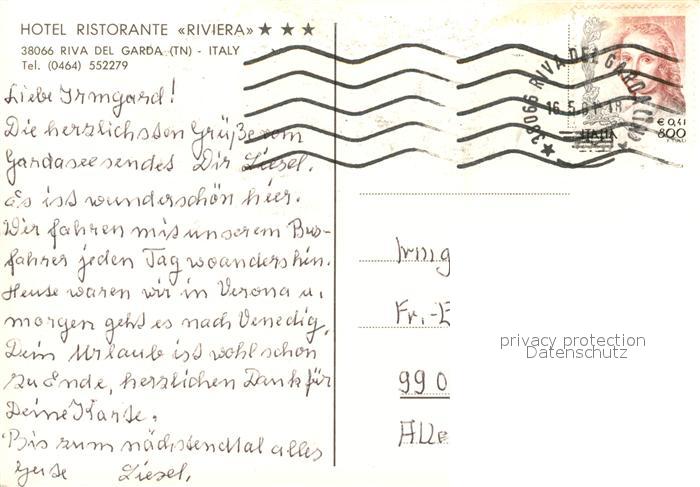 HOTEL RISTORANTE «RIVIERA» ★ ★ ★
38066 RIVA DEL GARDA (TN) - ITALY
Tel. (0464) 552279
Liebe Irmgard!
Die herzlichsten Grüße vom
Gardasee sendet Dir Liesel.
Es ist wunderschön hier.
Wir fahren mit unserem Bus-
fahrer jeden Tag woanders hin.
Heute waren wir in Verona u.
morgen geht es nach Venedig.
Dein Urlaub ist wohl schon
zu Ende, herzlichen Dank für
Deine Karte.
Bis zum nächstendtal alles
Gute Liesel.
38066 RIVA DEL GARDA (TN)
16.5.
18
ITALIA
€ 0,41
800
Irmg
Fr.-E
990
Alle
privacy protection
Datenschutz